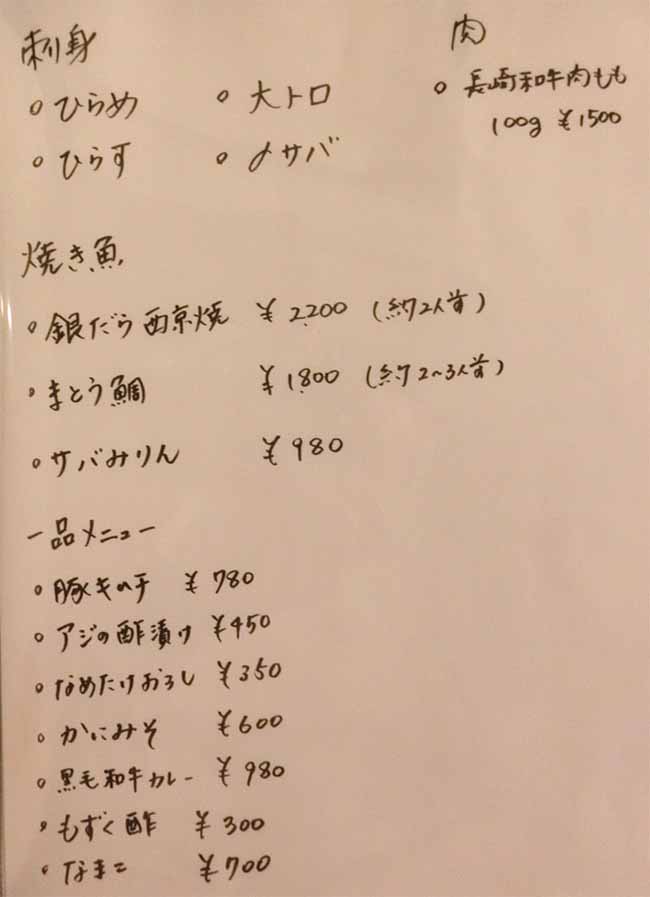 刺身
肉
○ ひらめ
○ 大トロ
○ 長崎和牛肉もも
100g ¥1500
○ ひらす
○ 〆サバ
焼き魚
○ 銀だら西京焼 ¥2200 (約2人前)
○ まとう鯛 ¥1800 (約2~3人前)
○ サバみりん ¥980
一品メニュー
○ 豚キムチ ¥780
○ アジの酢漬け ¥450
○ なめたけおろし ¥350
○ かにみそ ¥600
○ 黒毛和牛カレー ¥980
○ もずく酢 ¥300
○ なまこ ¥700